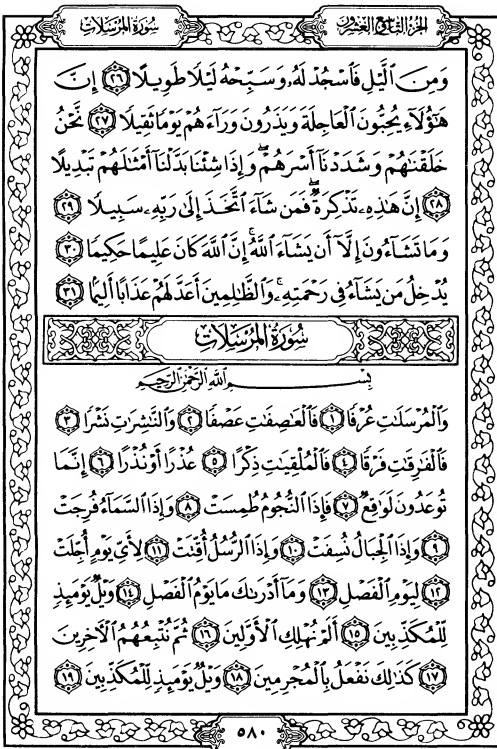 الجزء التاسع والعشرون سورة المرسلات
وَمِنَ ٱلَّيۡلِ فَٱسۡجُدۡ لَهُۥ وَسَبِّحۡهُ لَيۡلٗا طَوِيلًا ٢٦ إِنَّ
هَٰٓؤُلَآءِ يُحِبُّونَ ٱلۡعَاجِلَةَ وَيَذَرُونَ وَرَآءَهُمۡ يَوۡمٗا ثَقِيلٗا ٢٧ نَّحۡنُ
خَلَقۡنَٰهُمۡ وَشَدَدۡنَآ أَسۡرَهُمۡۖ وَإِذَا شِئۡنَا بَدَّلۡنَآ أَمۡثَٰلَهُمۡ تَبۡدِيلًا
٢٨ إِنَّ هَٰذِهِۦ تَذۡكِرَةٞۖ فَمَن شَآءَ ٱتَّخَذَ إِلَىٰ رَبِّهِۦ سَبِيلٗا ٢٩
وَمَا تَشَآءُونَ إِلَّآ أَن يَشَآءَ ٱللَّهُۚ إِنَّ ٱللَّهَ كَانَ عَلِيمًا حَكِيمٗا ٣٠
يُدۡخِلُ مَن يَشَآءُ فِي رَحۡمَتِهِۦۚ وَٱلظَّٰلِمِينَ أَعَدَّ لَهُمۡ عَذَابًا أَلِيمَۢا ٣١
سُورَةُ المُرۡسَلَاتِ
بِسۡمِ ٱللَّهِ ٱلرَّحۡمَٰنِ ٱلرَّحِيمِ
وَٱلۡمُرۡسَلَٰتِ عُرۡفٗا ١ فَٱلۡعَٰصِفَٰتِ عَصۡفٗا ٢ وَٱلنَّٰشِرَٰتِ نَشۡرٗا ٣
فَٱلۡفَٰرِقَٰتِ فَرۡقٗا ٤ فَٱلۡمُلۡقِيَٰتِ ذِكۡرًا ٥ عُذۡرًا أَوۡ نُذۡرًا ٦ إِنَّمَا
تُوعَدُونَ لَوَٰقِعٞ ٧ فَإِذَا ٱلنُّجُومُ طُمِسَتۡ ٨ وَإِذَا ٱلسَّمَآءُ فُرِجَتۡ
٩ وَإِذَا ٱلۡجِبَالُ نُسِفَتۡ ١٠ وَإِذَا ٱلرُّسُلُ أُقِّتَتۡ ١١ لِأَيِّ يَوۡمٍ أُجِّلَتۡ
١٢ لِيَوۡمِ ٱلۡفَصۡلِ ١٣ وَمَآ أَدۡرَىٰكَ مَا يَوۡمُ ٱلۡفَصۡلِ ١٤ وَيۡلٞ يَوۡمَئِذٖ
لِّلۡمُكَذِّبِينَ ١٥ أَلَمۡ نُهۡلِكِ ٱلۡأَوَّلِينَ ١٦ ثُمَّ نُتۡبِعُهُمُ ٱلۡأٓخِرِينَ
١٧ كَذَٰلِكَ نَفۡعَلُ بِٱلۡمُجۡرِمِينَ ١٨ وَيۡلٞ يَوۡمَئِذٖ لِّلۡمُكَذِّبِينَ ١٩
٥٨٠